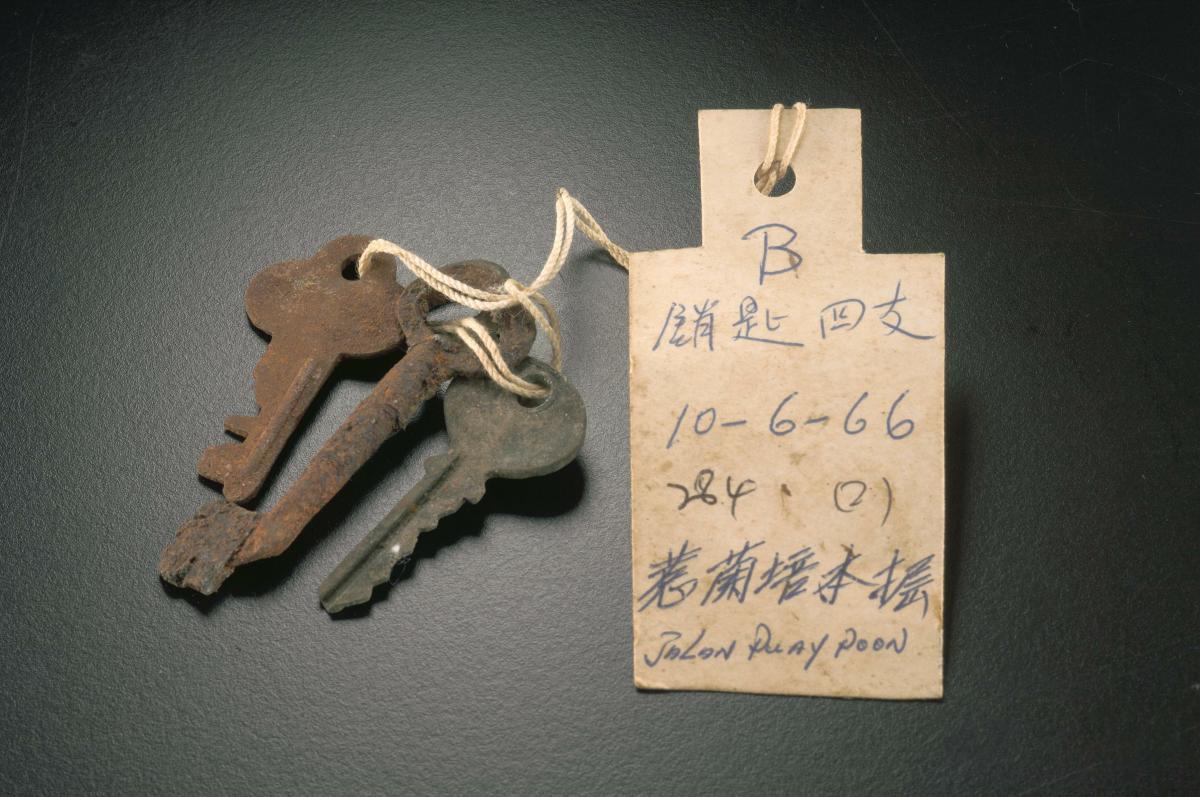 B
鎖匙 四支
10-6-66
284 · (2)
惹蘭培本
JaLan Puay Poon